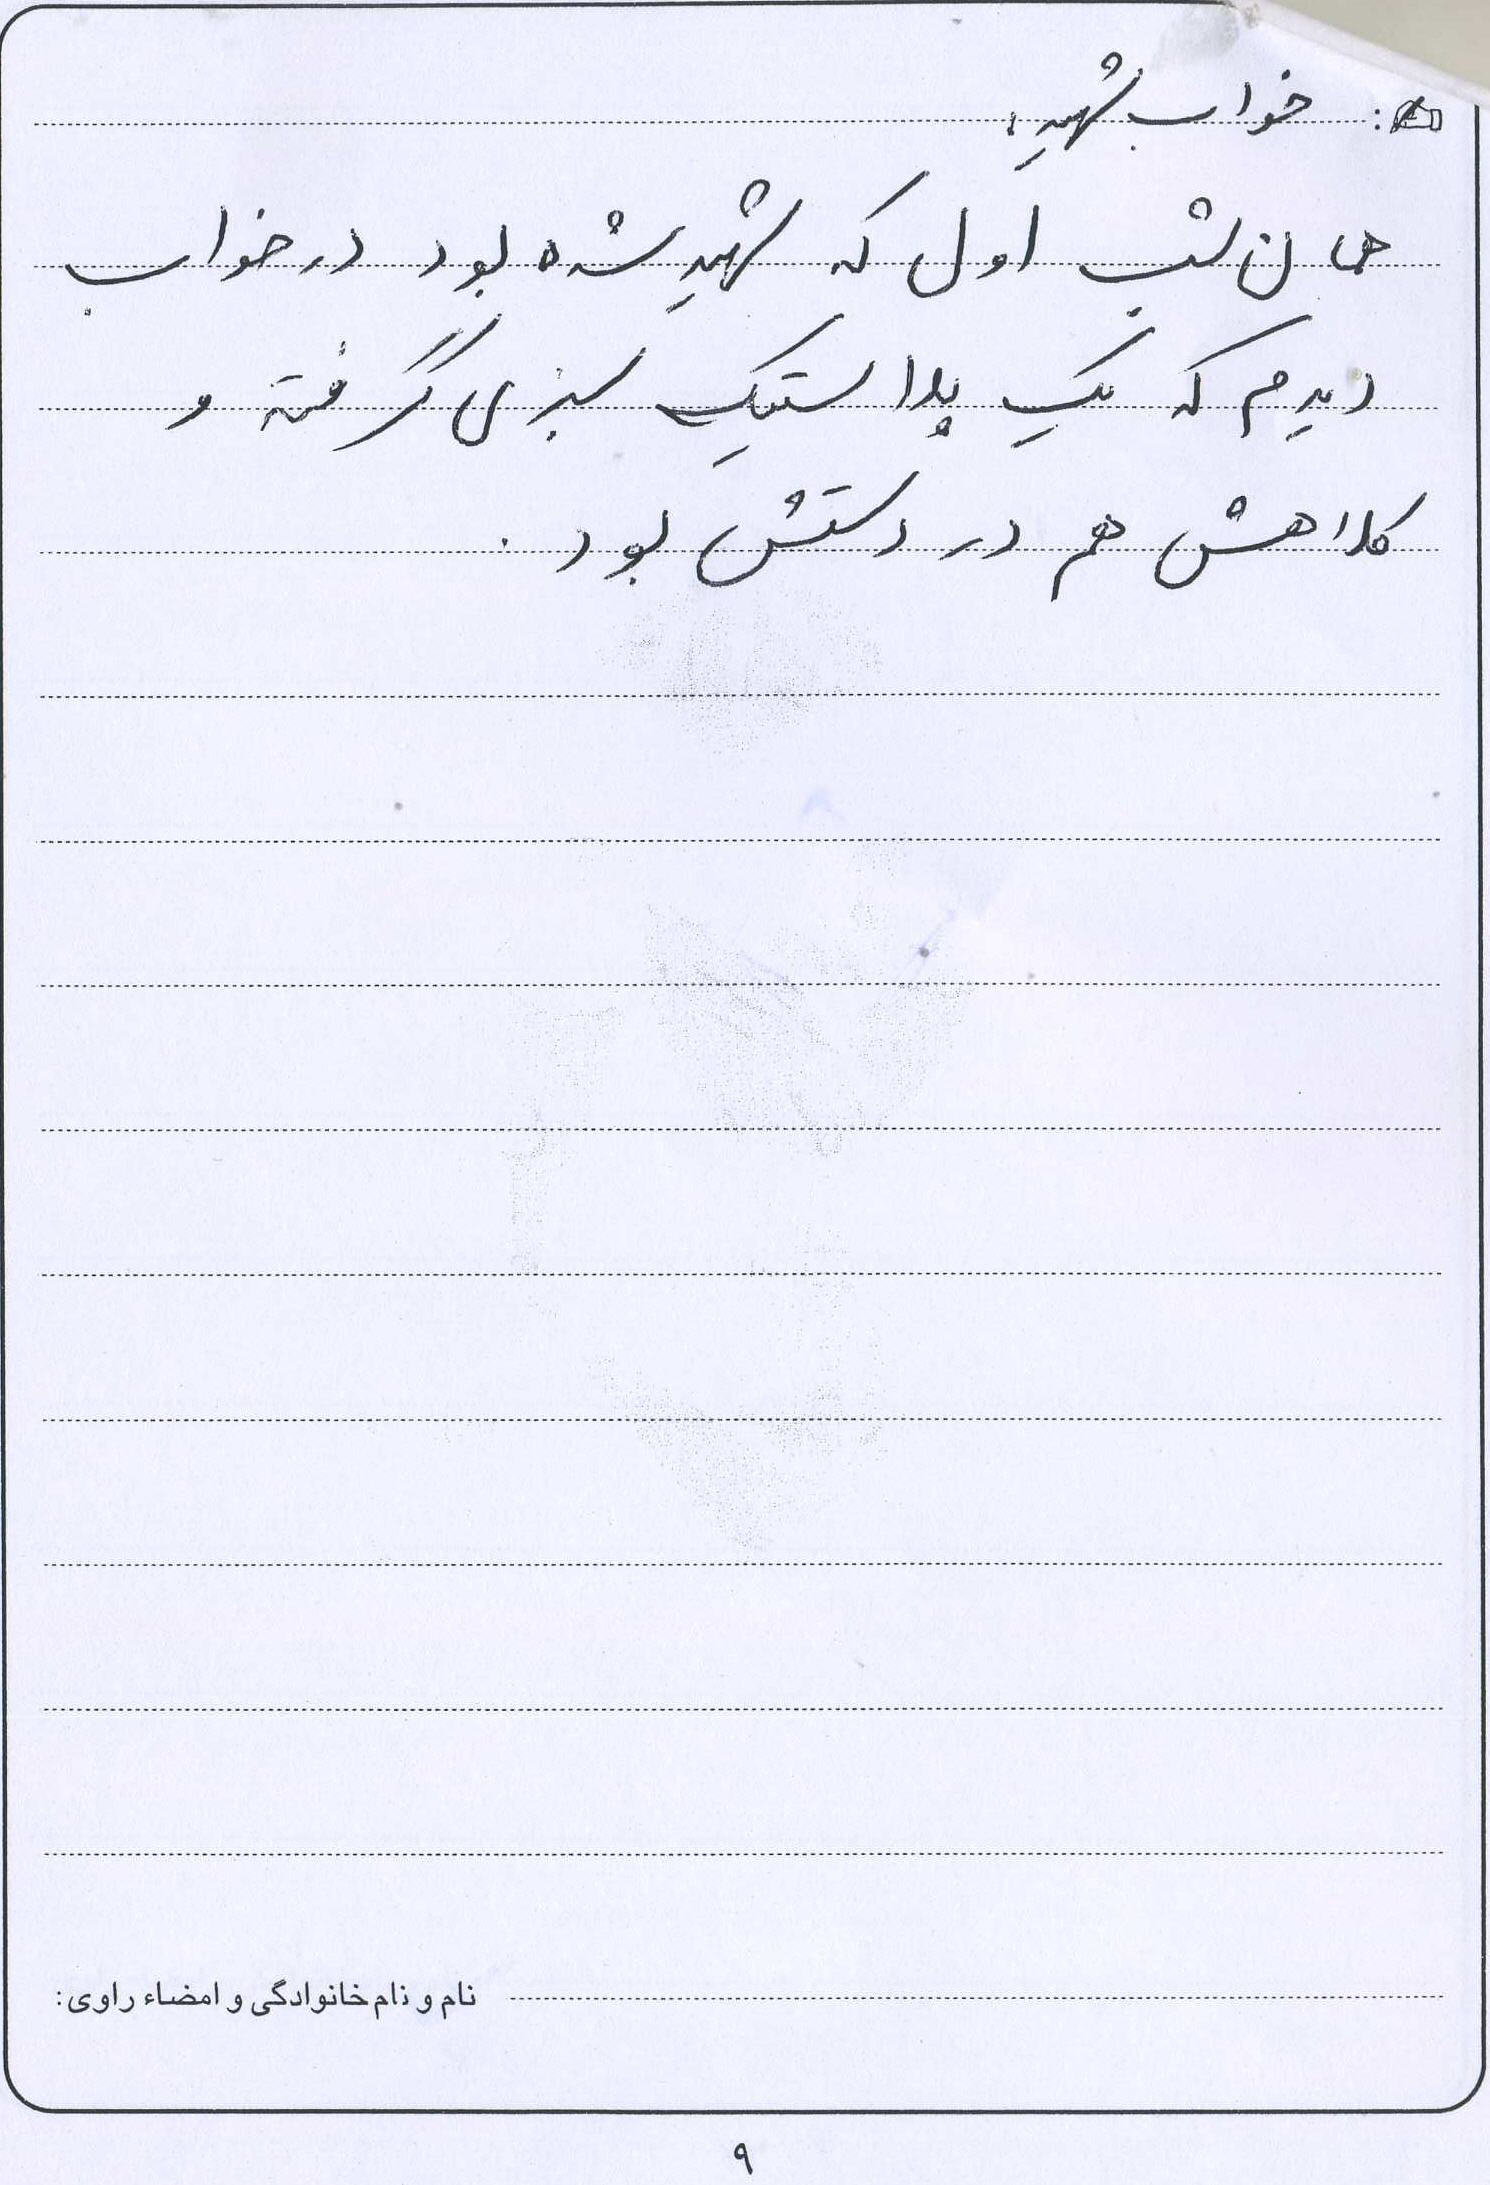 ✍: خواب شهید:
همان شب اول که شهید شده بود در خواب
دیدم که یک پلاستیک سبزی گرفته و
کلاهش هم در دستش بود.
نام و نام خانوادگی و امضاء راوی:
۹